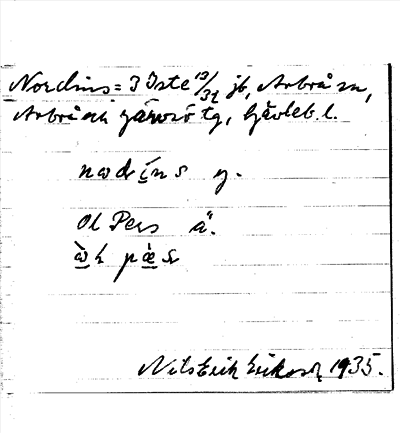 Nordins = 3 Iste 13/32 jb, Arbrå sn,
Arbrå och Järvsö tg, Gävleb. l.
nωdi̱ns y.
Ol Pers ä.
ὼ̱l pæ̱̀s
Nils Erik Erikson 1935.